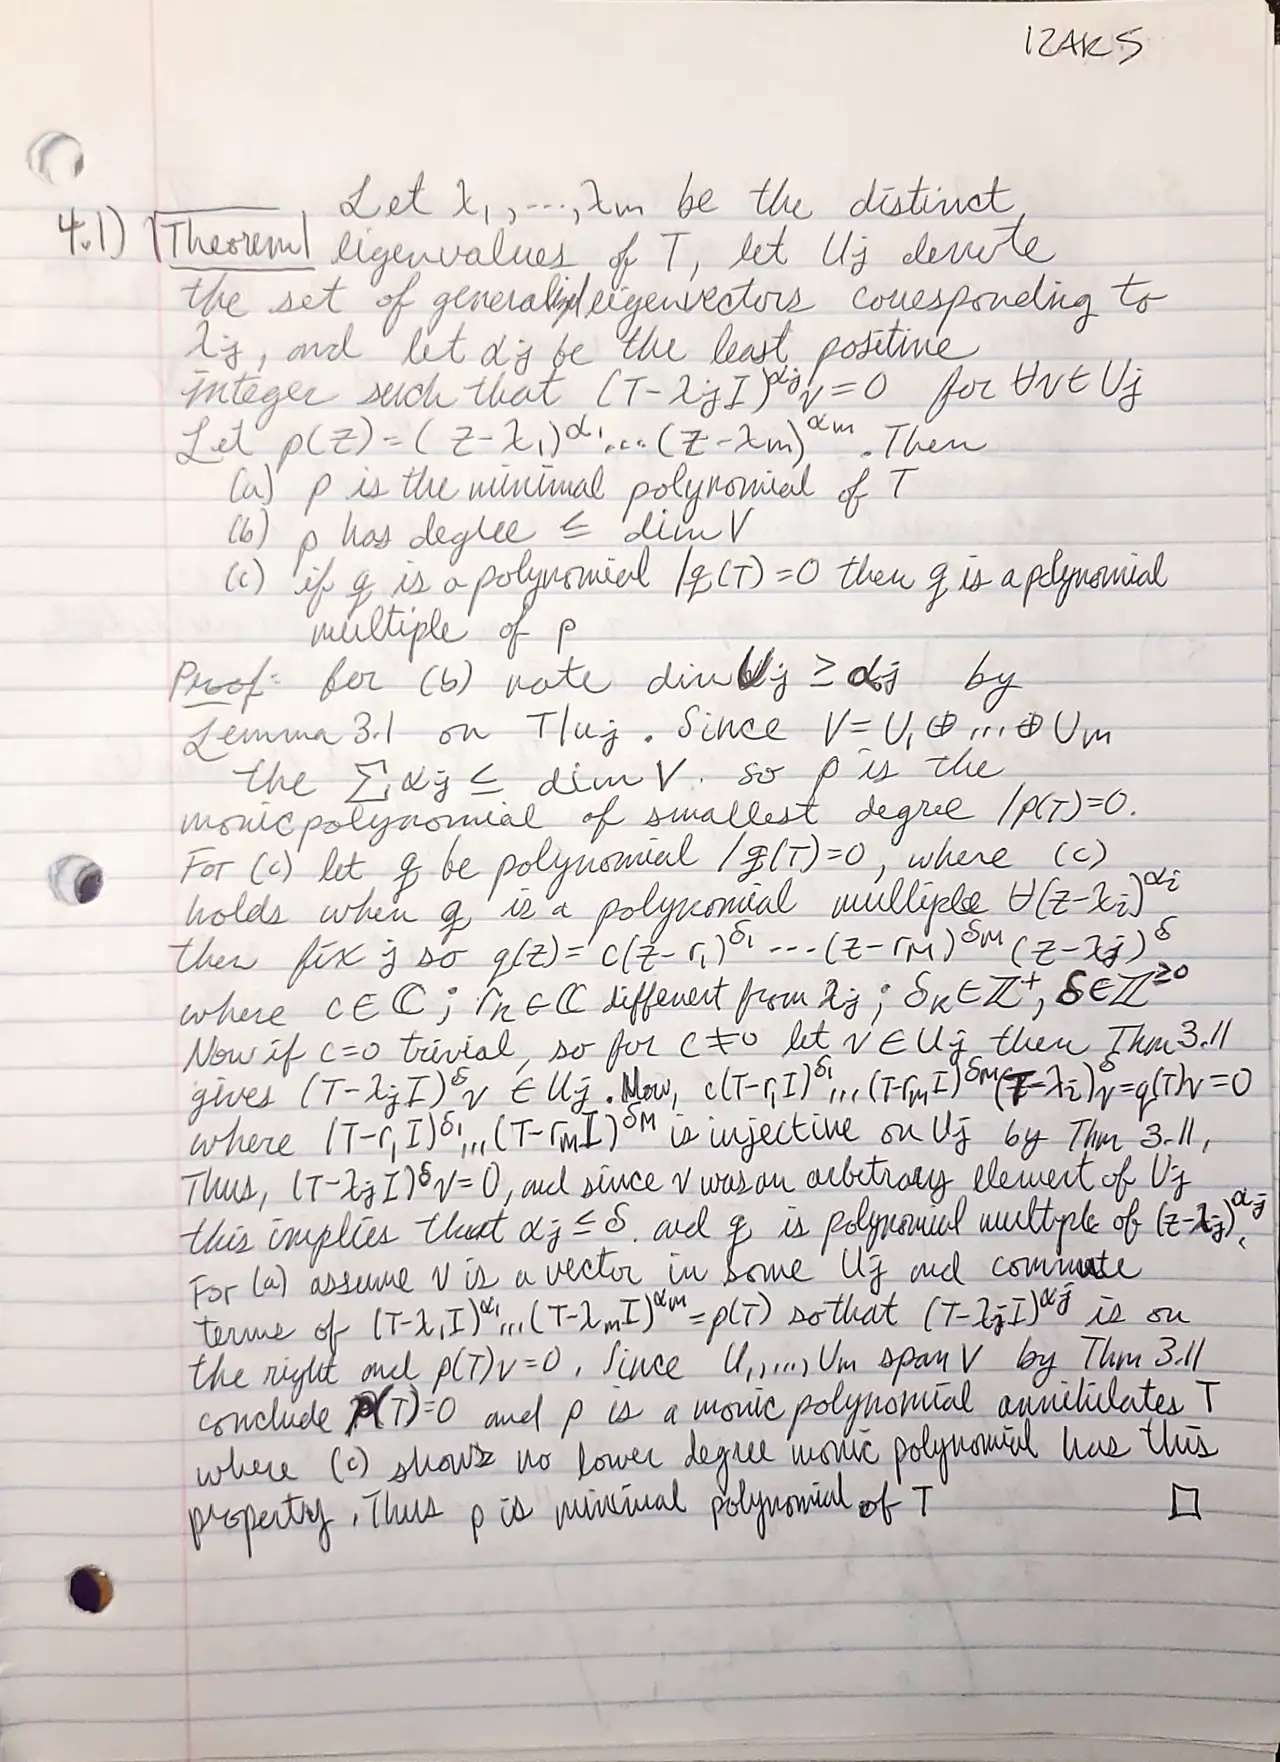 12AK5
Let λ₁,...,λm be the distinct
4.1) Theorem eigenvalues of T, let Uj denote
the set of generalized eigenvectors corresponding to
λj, and let αj be the least positive
integer such that (T-λjI)^αj v=0 for ∀v∈Uj
Let p(z)=(z-λ₁)^α₁...(z-λm)^αm. Then
(a) p is the minimal polynomial of T
(b) p has degree ≤ dim V
(c) if q is a polynomial /q(T)=0 then q is a polynomial
multiple of p
Proof: for (b) note dim Uj ≥ αj by
Lemma 3.1 on T|Uj. Since V=U₁⊕...⊕Um
the Σαj ≤ dim V. so p is the
monic polynomial of smallest degree /p(T)=0.
For (c) let q be polynomial /q(T)=0, where (c)
holds when q is a polynomial multiple ∀(z-λi)^αi
then fix j so q(z)=c(z-r₁)^δ₁---(z-rM)^δM(z-λj)^δ
where c∈ℂ; rk∈ℂ different from λj; δk∈ℤ⁺, δ∈ℤ^≥0
Now if c=0 trivial, so for c≠0 let v∈Uj then Thm 3.11
gives (T-λjI)^δ v ∈Uj. Now, c(T-r₁I)^δ₁...(T-rmI)^δM(T-λi)^δ v=q(T)v=0
where (T-r₁I)^δ₁...(T-rmI)^δM is injective on Uj by Thm 3.11,
Thus, (T-λjI)^δ v=0, and since v was an arbetrary element of Uj
this implies that αj≤δ. and q is polynomial multiple of (z-λj)^αj.
For (a) assume v is a vector in some Uj and commute
terms of (T-λ₁I)^α₁...(T-λmI)^αm=p(T) so that (T-λjI)^αj is on
the right and p(T)v=0. Since U₁,...,Um span V by Thm 3.11
conclude p(T)=0 and p is a monic polynomial annihilates T
where (c) shows no lower degree monic polynomial has this
property. Thus p is minimal polynomial of T □